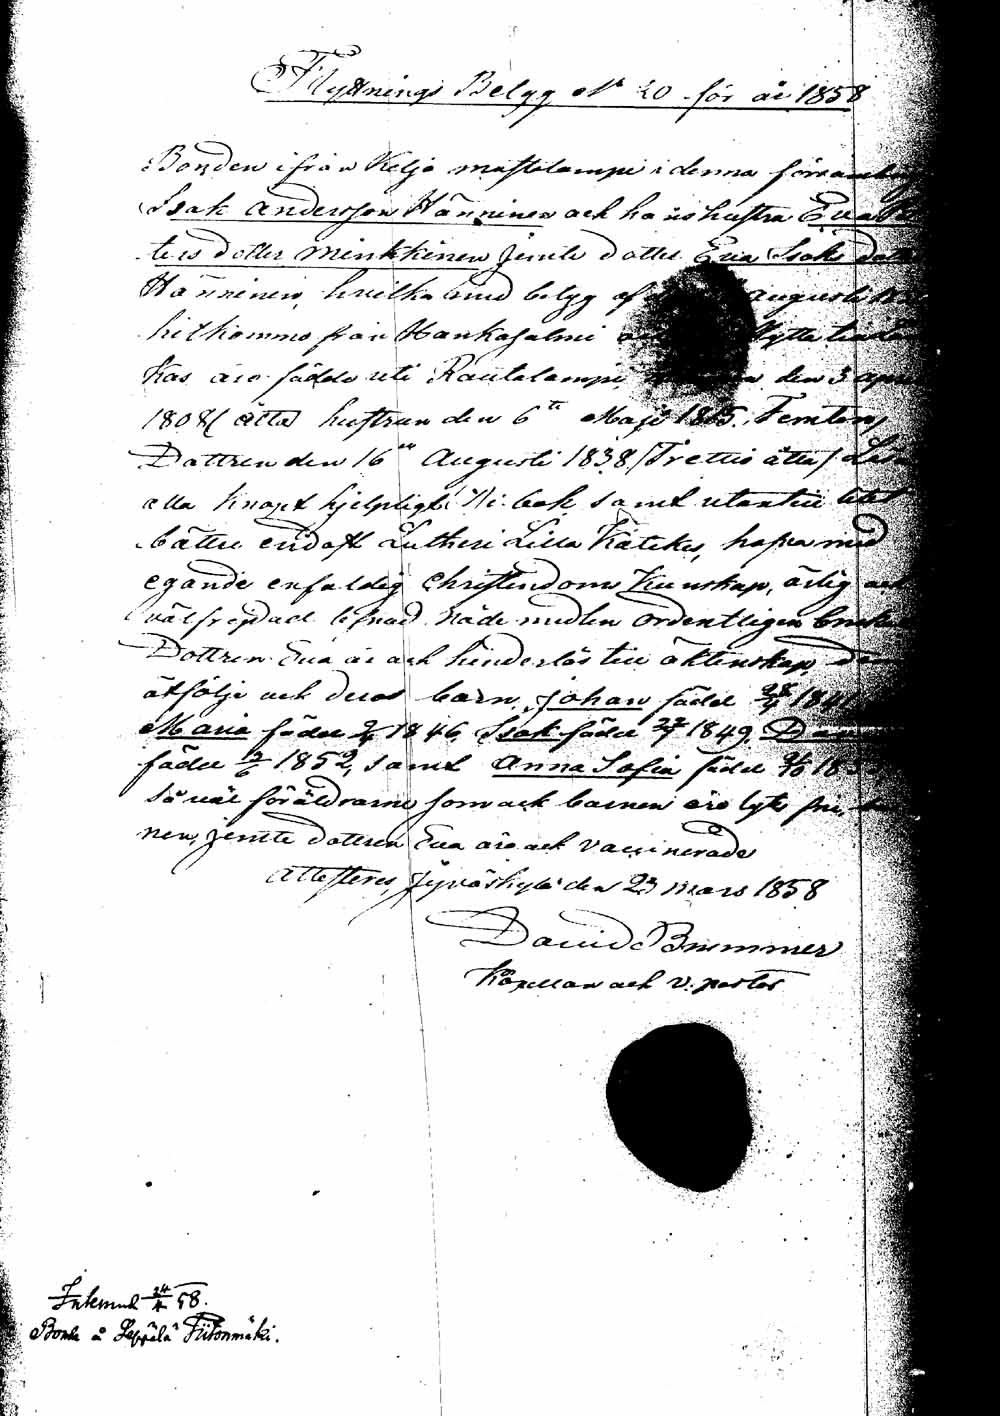 Flyttnings Belyg No 20 för år 1858
Bonden ifrån Keljo mustalampi i denna församling
Isak Andersson Hänninen och hans hustru Eva
ters dotter Minkkinen jemte dotter Eva Isaks dotter
Hänninen, hvilka med belyg af Augusti
hitkommo från Hankasalmi flytta
kas äro födde uti Rautalampi den 3 April
1808 (åtta) hustrun den 6te Maji 1815. Femton,
Dottren den 16de Augusti 1838 (Trettio åtta)
alla knapt hjelpligt i bok samt utantill
bättre endast Lutheri Lilla Katekes, hafva med
egande enfaldig Christendoms Kunskap, ärlig och
välfrejdad lefnad Nåde medlen ordentligen
Dottren Eva är ock hinderlös till äktenskap,
åtfölje ock deras barn, Johan född 1841
Maria född 1846, Isak född 1849,
född 1852, samt Anna Sofia född
så väl föräldrarne som ock barnen äro lyts fri,
nen, jemte dottren Eva äro ock vaccinerade
Attesteres, Jyväskylä den 23 Mars 1858
David Brummer
Kapellan och v. pastor
Inkomna 24/4 58.
Bonde å Leppälä Tiitonmäki.